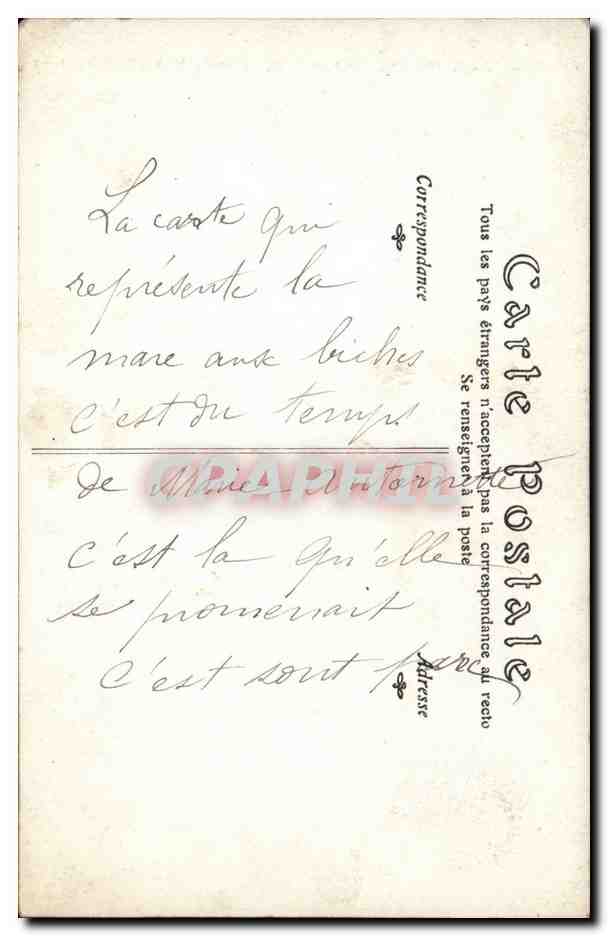 La carte qui
représente la
mare aux biches
c'est du temps
de Marie Antoinette
c'est la qu'elle
se promenait
c'est sont parc
Carte Postale
Tous les pays étrangers n'acceptent pas la correspondance au recto
Se renseigner à la poste
Correspondance
Adresse
CPAPHIL